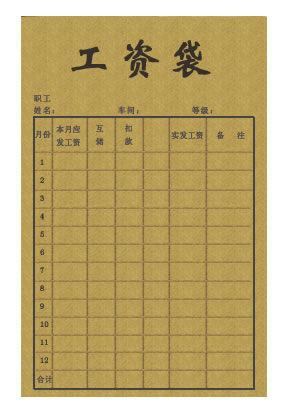 工资袋
职工
姓名： 车间： 等级：
月份 本月应发工资 互储 扣款 实发工资 备 注
1
2
3
4
5
6
7
8
9
10
11
12
合计